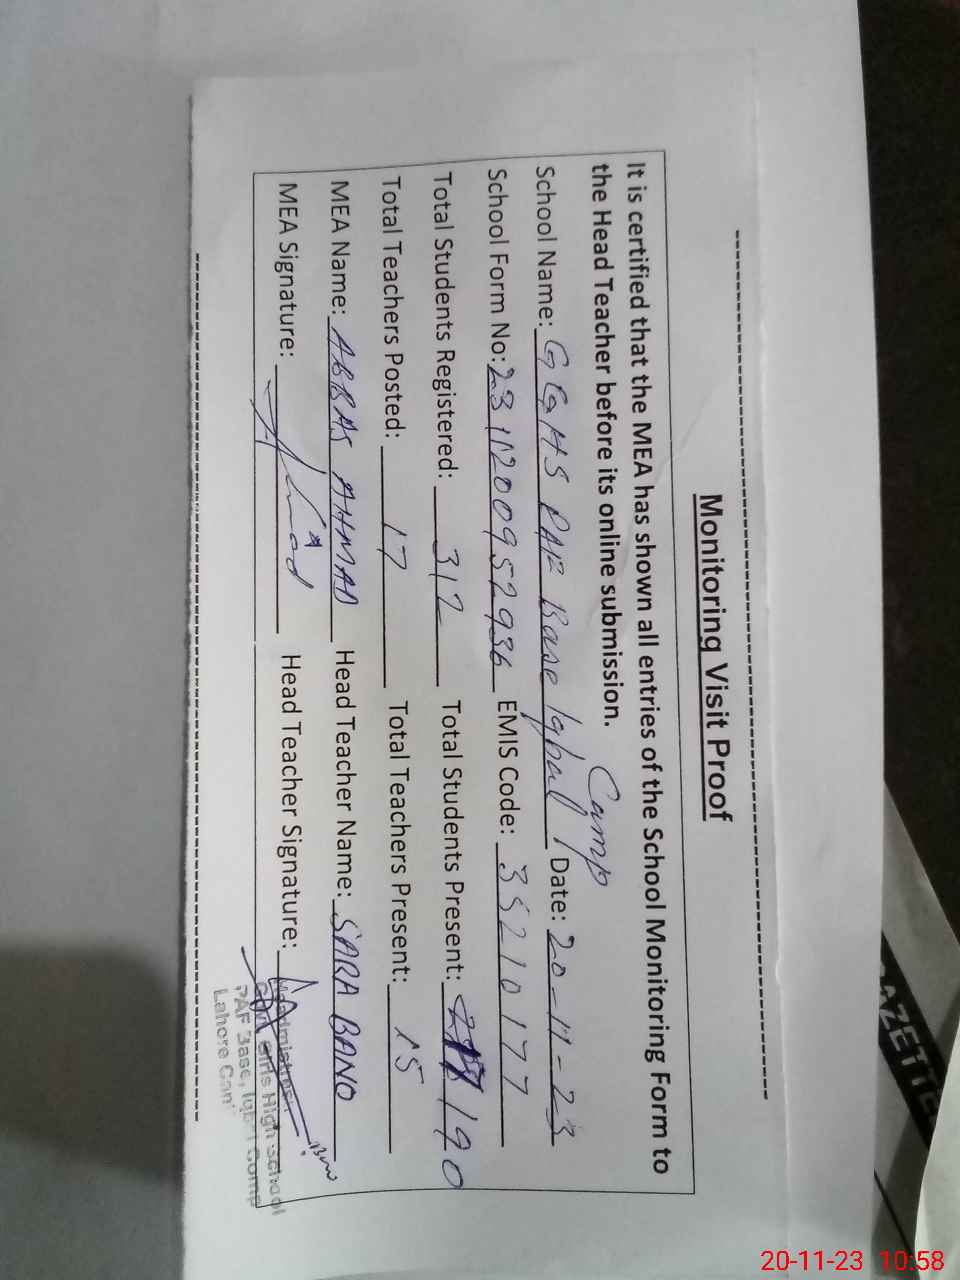 Monitoring Visit Proof
It is certified that the MEA has shown all entries of the School Monitoring Form to
the Head Teacher before its online submission.
Camp
School Name: GGHS PAF Base Iqbal Date: 20-11-23
School Form No: 23111200952936 EMIS Code: 35210177
Total Students Registered: 312 Total Students Present: 190
Total Teachers Posted: 17 Total Teachers Present: 15
MEA Name: ABBAS AHMAD Head Teacher Name: SARA BANO
MEA Signature: Head Teacher Signature:
Headmistress
Govt Girls High School
PAF Base, Iqbal Camp
Lahore Cantt
GAZETTE
20-11-23 10:58